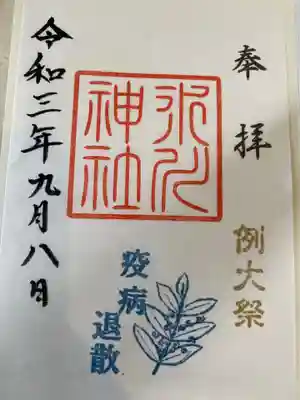 奉拝
例大祭
氷川
神社
疫病
退散
令和三年九月八日